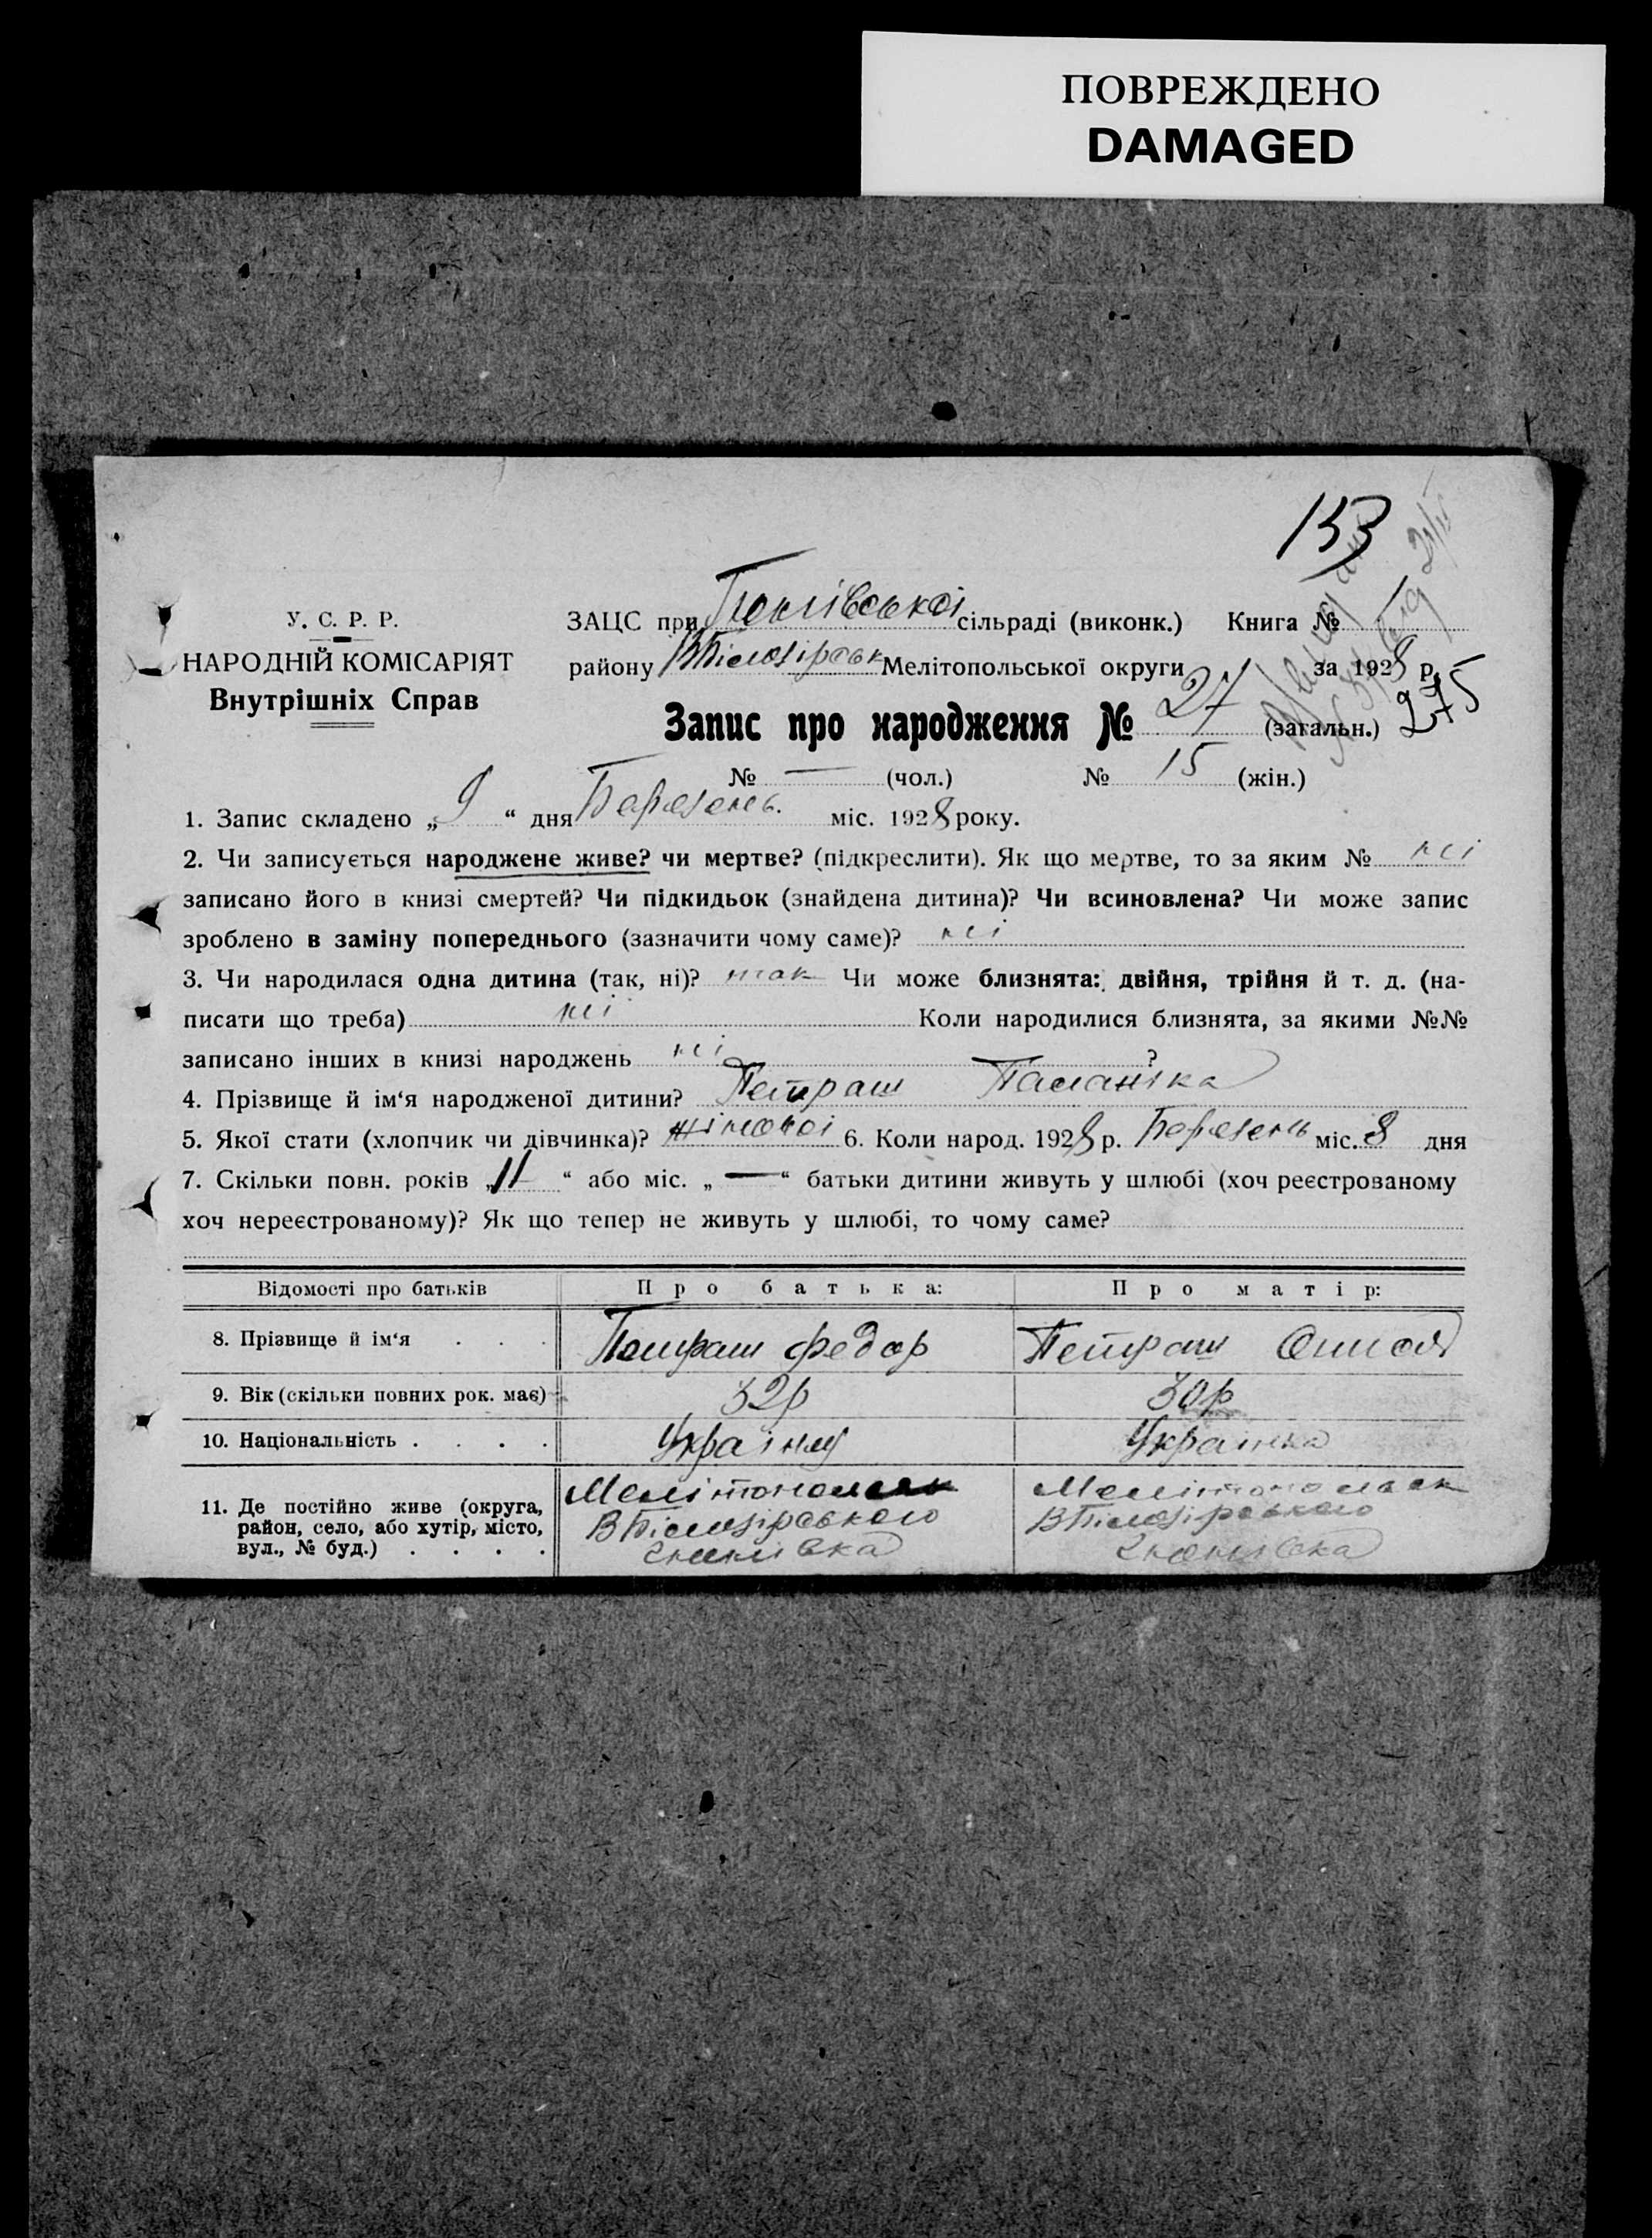 ПОВРЕЖДЕНО
DAMAGED
153
У. С. Р. Р.
НАРОДНІЙ КОМІСАРІЯТ
Внутрішніх Справ
ЗАЦС при сільраді (виконк.) Книга №
району ВБілозірськ Мелітопольської округи за 1928 р.
Запис про народження № 27 (загальн.) 275
№ — (чол.) № 15 (жін.)
1. Запис складено „ 9 “ дня Березень міс. 1928 року.
2. Чи записується народжене живе? чи мертве? (підкреслити). Як що мертве, то за яким № ні
записано його в книзі смертей? Чи підкидьок (знайдена дитина)? Чи всиновлена? Чи може запис
зроблено в заміну попереднього (зазначити чому саме)? ні
3. Чи народилася одна дитина (так, ні)? так Чи може близнята: двійня, трійня й т. д. (на-
писати що треба) ні Коли народилися близнята, за якими №№
записано інших в книзі народжень ні ?
4. Прізвище й ім‘я народженої дитини? Петраш Паланіка
5. Якої стати (хлопчик чи дівчинка)? жіночої 6. Коли народ. 1928 р. Березень міс. 8 дня
7. Скільки повн. років „ 11 “ або міс. „ — “ батьки дитини живуть у шлюбі (хоч реєстрованому
хоч нереєстрованому)? Як що тепер не живуть у шлюбі, то чому саме?
Відомості про батьків Про батька: Про матір:
8. Прізвище й ім‘я . . . Петраш Федор Петраш
9. Вік (скільки повних рок. має) 32р 30р
10. Національність . . . . Українец Українка
11. Де постійно живе (округа, Мелітопольськ Мелітопольськ
район, село, або хутір, місто, ВБілозірського ВБілозірського
вул., № буд.) . . . .